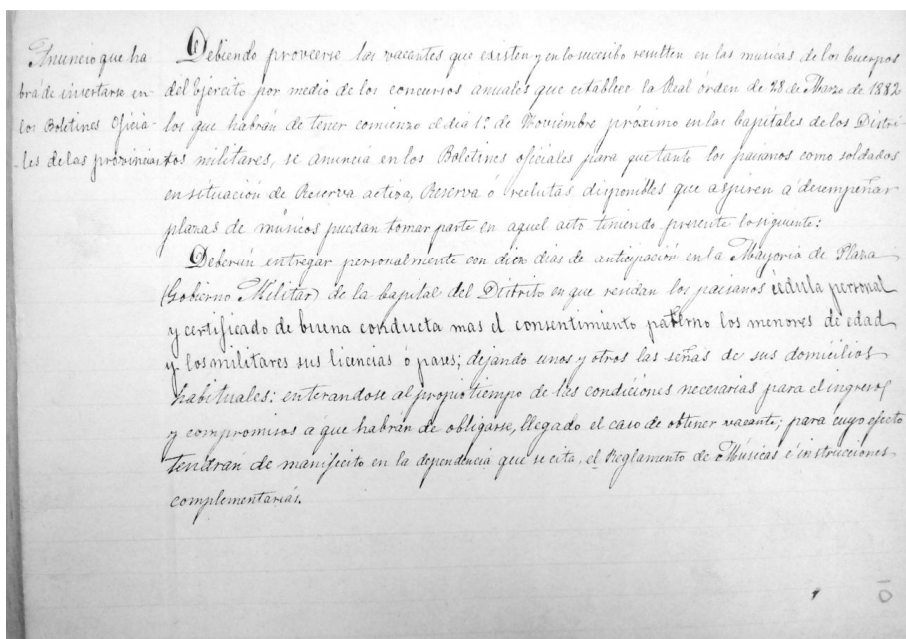 Anuncio que ha
brá de insertarse en
los Boletines Oficia-
-les de las provincias
Debiendo proveerse las vacantes que existen y en lo sucesibo resulten en las músicas de los Cuerpos
del Ejército por medio de los concursos anuales que establece la Real órden de 28 de Marzo de 1882
los que habrán de tener comienzo el dia 1º de Noviembre próximo en las Capitales de los Distri-
tos militares, se anuncia en los Boletines oficiales para que tanto los paisanos como soldados
en situación de Reserva activa, Reserva ó reclutas disponibles que aspiren á desempeñar
plazas de músicos puedan tomar parte en aquel acto teniendo presente lo siguiente:
Deberán entregar personalmente con diez dias de anticipación en la Mayoria de Plaza
(Gobierno Militar) de la Capital del Distrito en que residan los paisanos cédula personal
y certificado de buena conducta mas el consentimiento paterno los menores de edad
y los militares sus licencias ó pases; dejando unos y otros las señas de sus domicilios
habituales: enterandose al propio tiempo de las condiciones necesarias para el ingreso
y compromisos á que habrán de obligarse, llegado el caso de obtener vacante; para cuyo efecto
tendrán de manifiesto en la dependencia que se cita, el Reglamento de Músicas é instrucciones
complementarias.